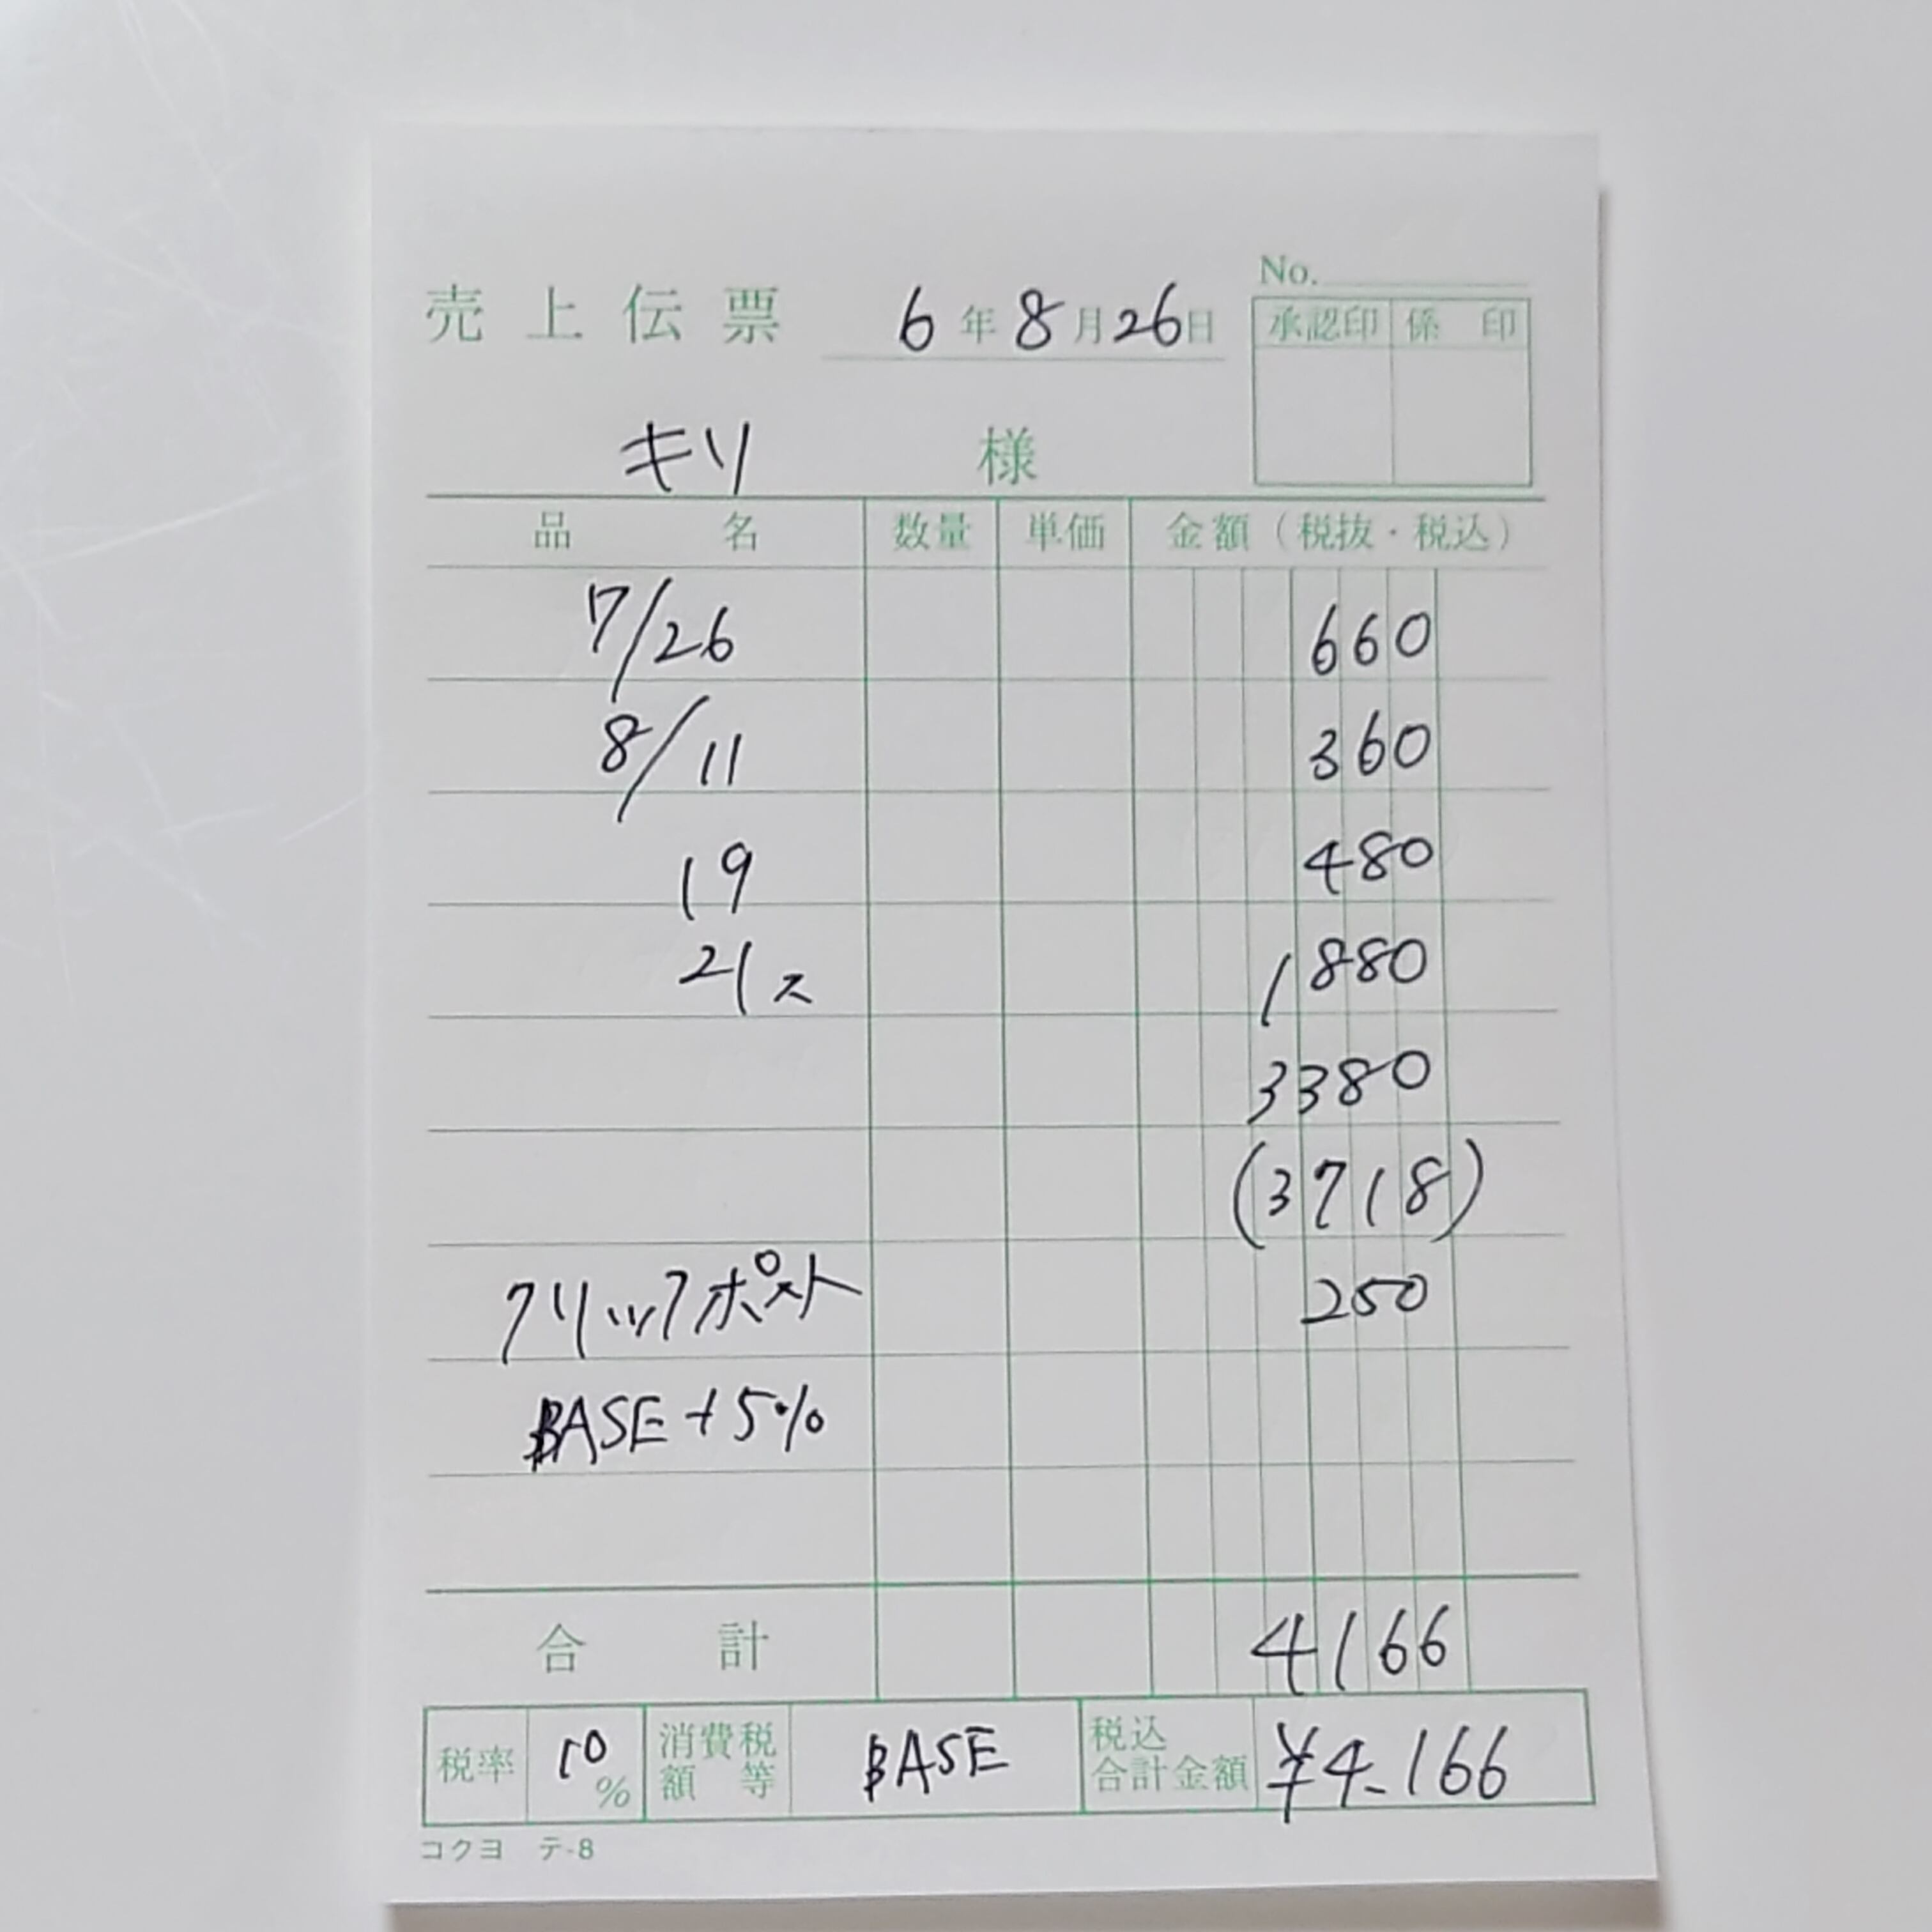 No.
売上伝票 6年8月26日
承認印 係印
キリ 様
品名 数量 単価 金額(税抜・税込)
7/26 660
8/11 360
19 480
21ス 1880
3380
(3718)
クリックポスト 250
BASE+5%
合計 4166
税率 10% 消費税額等 BASE 税込合計金額 ¥4-166
コクヨ テ-8